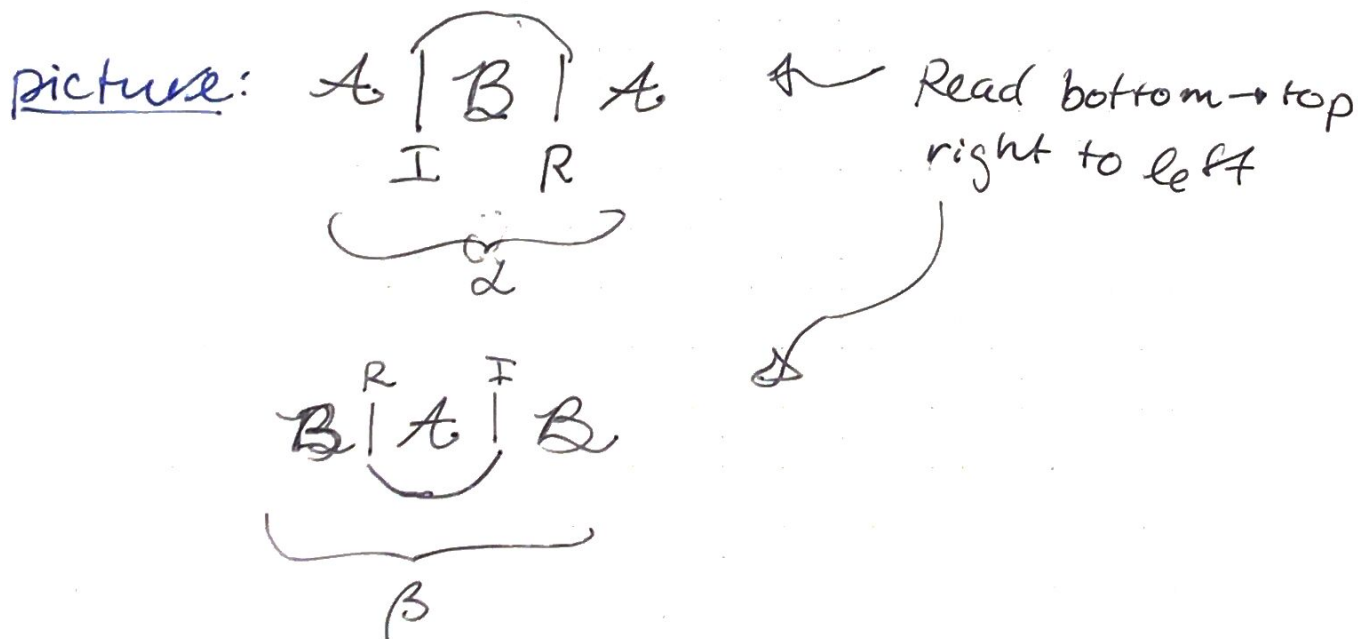 picture: A | B | A ← Read bottom → top
right to left
I R
α
R I
B | A | B
β